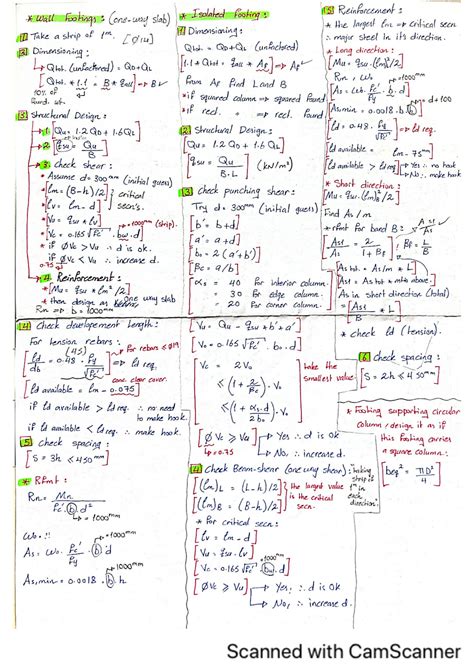 * Wall Footings: (one-way slab)
1 Take a strip of 1m.
2 Dimensioning:
Qtot. (unfactored) = QD + QL
[Qtot. * 1.1 = B * qall] → B ✓
10% of
found. wt.
3 Structural Design:
1. Qu = 1.2 QD + 1.6 QL
2. qsu = Qu / B
3. check shear:
* Assume d = 300mm (initial guess)
* lm = (B-h)/2 } critical
* lv = lm - d } secn's.
* Vu = qsu * lv
* Vc = 0.165 √fc' . bw . d → 1000mm (strip).
* if ΦVc > Vu ∴ d is ok.
0.75
if ΦVc ≤ Vu ∴ increase d.
4. Reinforcement:
* [Mu = qsu * lm²/2]
* then design as one way slab
→ b = 1000mm
4 check developement length:
For tension rebars:
[ld/db = 0.48 . fy/√fc'] * For rebars ≤ Φ19
conc. clear cover.
[ld available = lm - 0.075]
if ld available > ld req. ∴ no need
to make hook.
if ld available < ld req. ∴ make hook.
5 Check spacing:
[S = 3h ≤ 450mm]
* RFmt:
Rn = Mn / fc' b d²
→ = 1000mm
As = Wo . fc'/fy . b d → 1000mm
As,min = 0.0018 . b h → 1000mm
* Isolated Footing:
1 Dimensioning:
Qtot. = QD + QL (unfactored)
[1.1 * Qtot = qall * AF] → AF ✓
from AF find L and B
* if squared column → squared found.
* if rect. → rect. found.
2 Structural Design:
Qu = 1.2 QD + 1.6 QL
[qsu = Qu / B.L] (kN/m²)
3 Check punching shear:
Try d = 300mm (initial guess)
[b' = b + d]
[a' = a + d]
[bo = 2 (a' + b')]
[βc = a/b]
[αs = 40 for interior column.
= 30 for edge column.
= 20 for corner column.]
[Vu = Qu - qsu * b' * a']
[Vo = 0.165 √fc' . bo . d]
[Vc = 2 Vo
≤ (1 + 2/βc) . Vo
≤ (1 + αs.d / 2bo) . Vo]
take the
smallest value
[ΦVc > Vu] → Yes ∴ d is ok
= 0.75 → No ∴ increase d.
4 Check Beam-shear (one way shear):
taking
strip of
1m in
each
direction.
[(lm)L = (L-h)/2] } the largest value
[(lm)B = (B-h)/2] } is the critical
secn.
* For critical secn:
[lv = lm - d]
[Vu = qsu . lv]
[Vc = 0.165 √fc' b d] → 1000mm
[ΦVc > Vu] → Yes, ∴ d is Ok
→ No, ∴ increase d.
5 Reinforcement:
* the largest lm → critical secn
∴ major steel in its direction.
* Long direction:
[Mu = qsu . (lm)L²/2]
Rn, Wo → 1000mm
[As = Wo . fc'/fy . b . d]
[As,min = 0.0018 . b . h] → d + 100
[ld = 0.48 . fy/√fc'] → ld req.
[ld available = lm - 75mm]
[ld available > ld req] → Yes ∴ no hook
→ No ∴ make hook.
* Short direction:
[Mu = qsu . (lm)B²/2]
Find As/m
* rfmt For band B:
[As1/Ast = 2/(1+βF)] , βF = L/B
[As tot. = As/m * L]
[Ast = As tot. * above.]
As in short direction (total)
[As1/B]
* check ld (tension).
6 check spacing:
[S = 2h ≤ 450mm]
* Footing supporting circular
column / design it as if
this footing carries
a square column:
[beq² = πD²/4]
Scanned with CamScanner